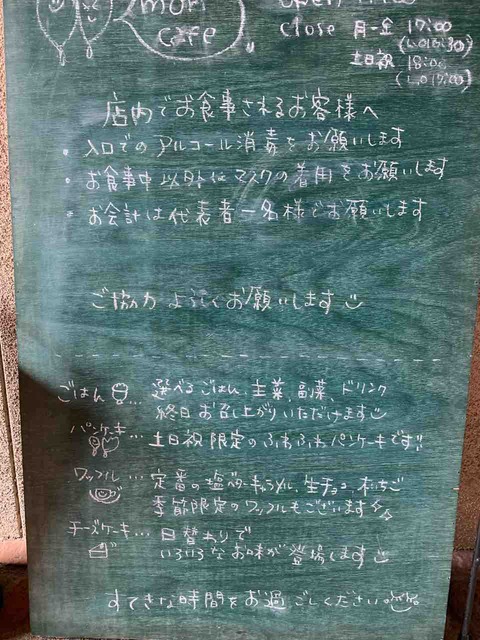 mori
cafe
close 月-金 17:00
(L.O 16:30)
土日祝 18:00
(L.O 17:00)
店内でお食事されるお客様へ
・入口でのアルコール消毒をお願いします
・お食事中以外はマスクの着用をお願いします
・お会計は代表者一名様でお願いします
ご協力よろしくお願いします
ごはん … 選べるごはん、主菜、副菜、ドリンク
終日お召し上がりいただけます
パンケーキ … 土日祝限定のふわふわパンケーキです!!
ワッフル … 定番の塩バターキャラメル、生チョコ、木いちご
季節限定のワッフルもございます
チーズケーキ … 日替わりで
いろいろなお味が登場します
すてきな時間をお過ごしください